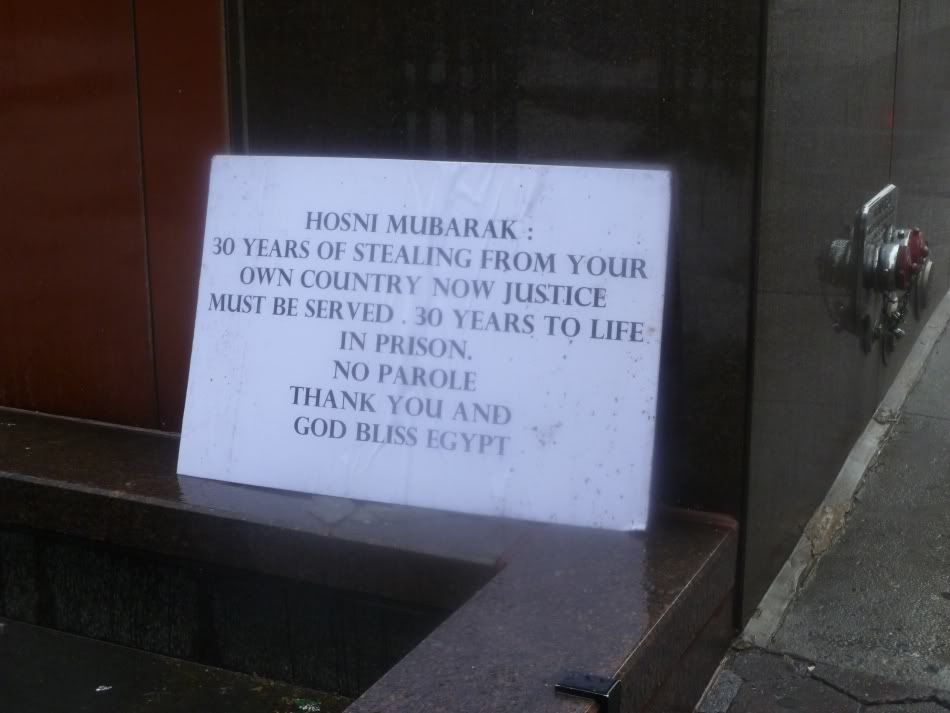 HOSNI MUBARAK :
30 YEARS OF STEALING FROM YOUR
OWN COUNTRY NOW JUSTICE
MUST BE SERVED . 30 YEARS TO LIFE
IN PRISON.
NO PAROLE
THANK YOU AND
GOD BLISS EGYPT